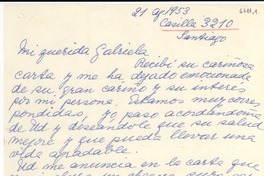 21 Ag 1953
Casilla 3210
Santiago
Mi querida Gabriela
Recibí su cariñosa
carta y me ha dejado emocionada
de su gran cariño y su interés
por mi persona. Estamos muy corres
pondidas, yo paso acordándome
de Ud y deseándole que su salud
mejore y que pueda llevar una
vida agradable.
Ud me anuncia en la carta que